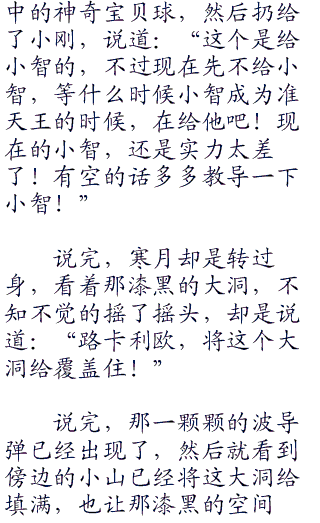 中的神奇宝贝球，然后扔给
了小刚，说道：“这个是给
小智的，不过现在先不给小
智，等什么时候小智成为准
天王的时候，在给他吧！现
在的小智，还是实力太差
了！有空的话多多教导一下
小智！”
说完，寒月却是转过
身，看着那漆黑的大洞，不
知不觉的摇了摇头，却是说
道：“路卡利欧，将这个大
洞给覆盖住！”
说完，那一颗颗的波导
弹已经出现了，然后就看到
傍边的小山已经将这大洞给
填满，也让那漆黑的空间